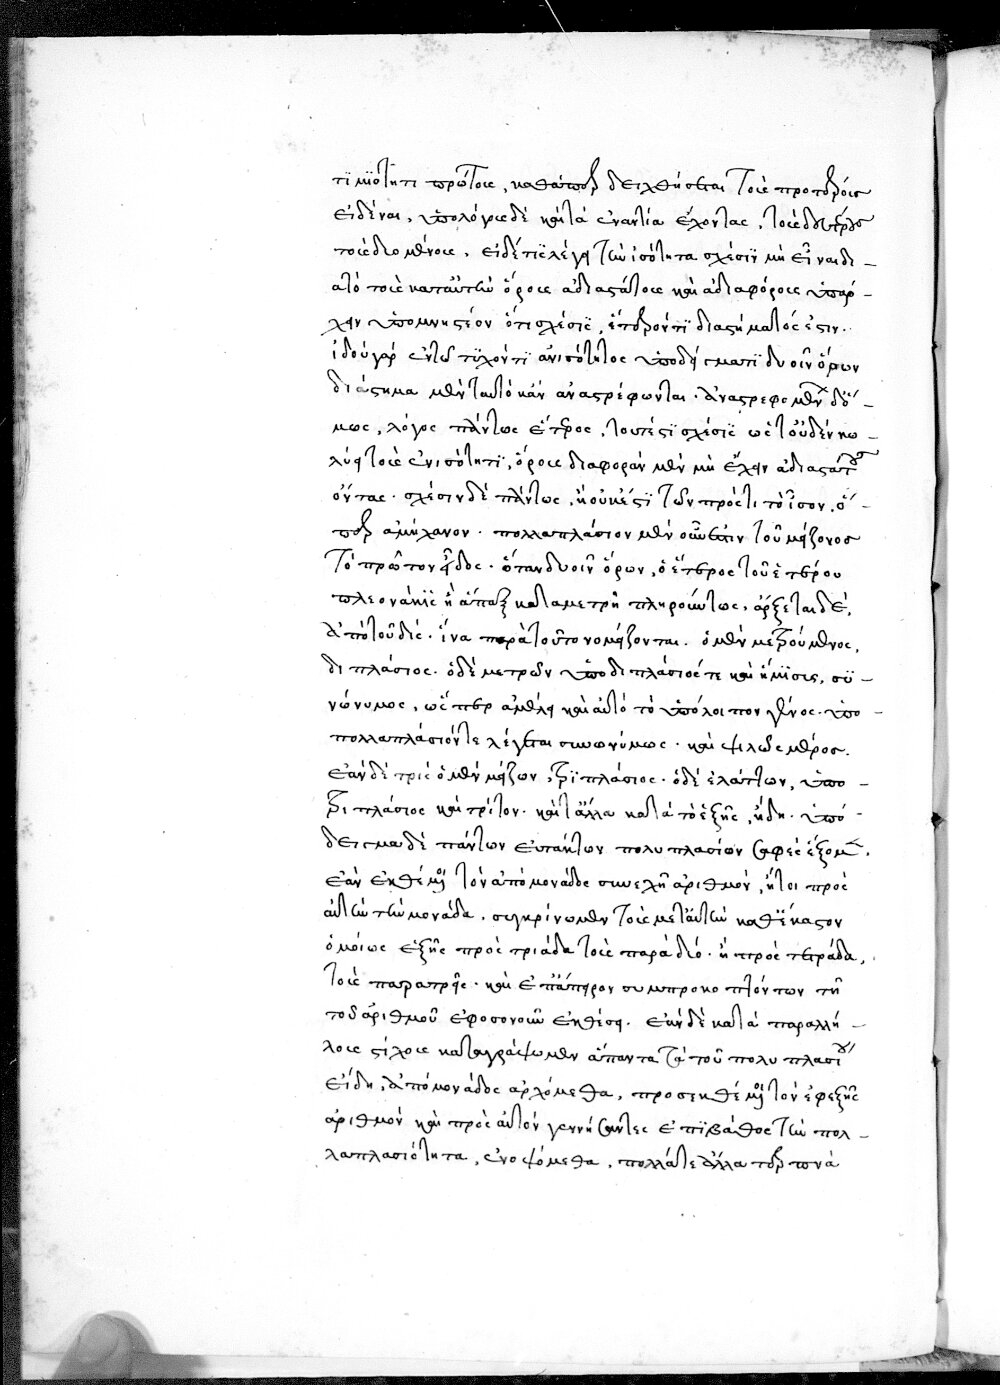 τιμιότητι πρώτοις, καθάπερ δειχθήσεται τοῖς προτέροις
εἰδέναι, ὑπολόγοις δὲ καὶ τὰ ἐναντία ἔχοντας, τοῖς δευτέροις
τοῖς δεομένοις. εἰ δέ τις λέγῃ τὴν ἰσότητα σχέσιν μὴ εἶναι δι–
ὰ τὸ τοῖς κατ' αὐτὴν ὅροις ἀδιαστάτοις καὶ ἀδιαφόροις ὑπάρ–
χειν ὑπομνηστέον ὅτι σχέσις, ἕτερόν τι διαστήματός ἐστιν.
ἰδοὺ γὰρ ἐν τῷ τυχόντι ἀνισότητος ὑποδείγματι δυοῖν ὅρων
διάστημα μὲν ταυτὸ κἂν ἀναστρέφωνται. ἀναστρεφομένων δὲ ὅ–
μως, λόγος πάντως ἕτερος, τουτέστι σχέσις ὥστ' οὐδὲν κω–
λύει τοὺς ἐν ἰσότητι, ὅρους διαφορὰν μὲν μὴ ἔχειν ἀδιαστάτους
ὄντας. σχέσιν δὲ πάντως, ἢ οὐκέτι τῶν πρός τι τὸ ἴσον. ὅ–
περ ἀμήχανον. πολλαπλάσιον μὲν οὖν ἐστιν τοῦ μείζονος
τὸ πρῶτον εἶδος. ὅταν δυοῖν ὅρων, ὁ ἕτερος τοῦ ἑτέρου
πλεονάκις ἢ ἅπαξ καταμετρῇ πληρούντως. ἄρξεται δὲ,
ἀπὸ τοῦ δίς. ἵνα παρὰ τοῦτο νομάζονται. ὁ μὲν μετρούμενος,
διπλάσιος. ὁ δὲ μετρῶν ὑποδιπλάσιός τε καὶ ἥμισυς, συ–
νώνυμος, ὥσπερ ἀμέλει καὶ αὐτὸ τὸ ὑπόλοιπον γένος. ὑπο–
πολλαπλάσιόν τε λέγεται συνωνύμως. καὶ ψιλῶς μέρος.
ἐὰν δὲ τρὶς ὁ μὲν μείζων, τριπλάσιος. ὁ δὲ ἐλάττων, ὑπο–
τριπλάσιος καὶ τρίτον. καὶ τἄλλα κατὰ τὸ ἑξῆς, ἤδη. ὑπό–
δειγμα δὲ πάντων εὐτάκτων πολυπλασίων σαφὲς ἕξομεν.
ἐὰν ἐκθέμενοι τὸν ἀπὸ μονάδος συνεχῆ ἀριθμὸν, ἤτοι πρὸς
αὐτὴν τὴν μονάδα. συγκρίνωμεν τοὺς μετ' αὐτὴν καθ' ἕκαστον
ὁμοίως ἑξῆς πρὸς τριάδα τοὺς παρὰ δύο. ἢ πρὸς τετράδα,
τοὺς παρὰ τρεῖς. καὶ ἐπ' ἄπειρον συμπροκοπτόντων τῇ
τοῦ ἀριθμοῦ ἐφοσονοῦν ἐκθέσει. ἐὰν δὲ κατὰ παραλλή–
λους στίχους καταγράψωμεν ἅπαντα τὰ τοῦ πολυπλασίου
εἴδη, ἀπὸ μονάδος ἀρχόμεθα, προσεκθέμενοι τὸν ἐφεξῆς
ἀριθμὸν καὶ πρὸς αὐτὸν γεννήσαντες ἐπὶ βάθος τὴν πολ–
λαπλασιότητα, ἐνοψόμεθα, πολλά τε ἄλλα τερπνὰ